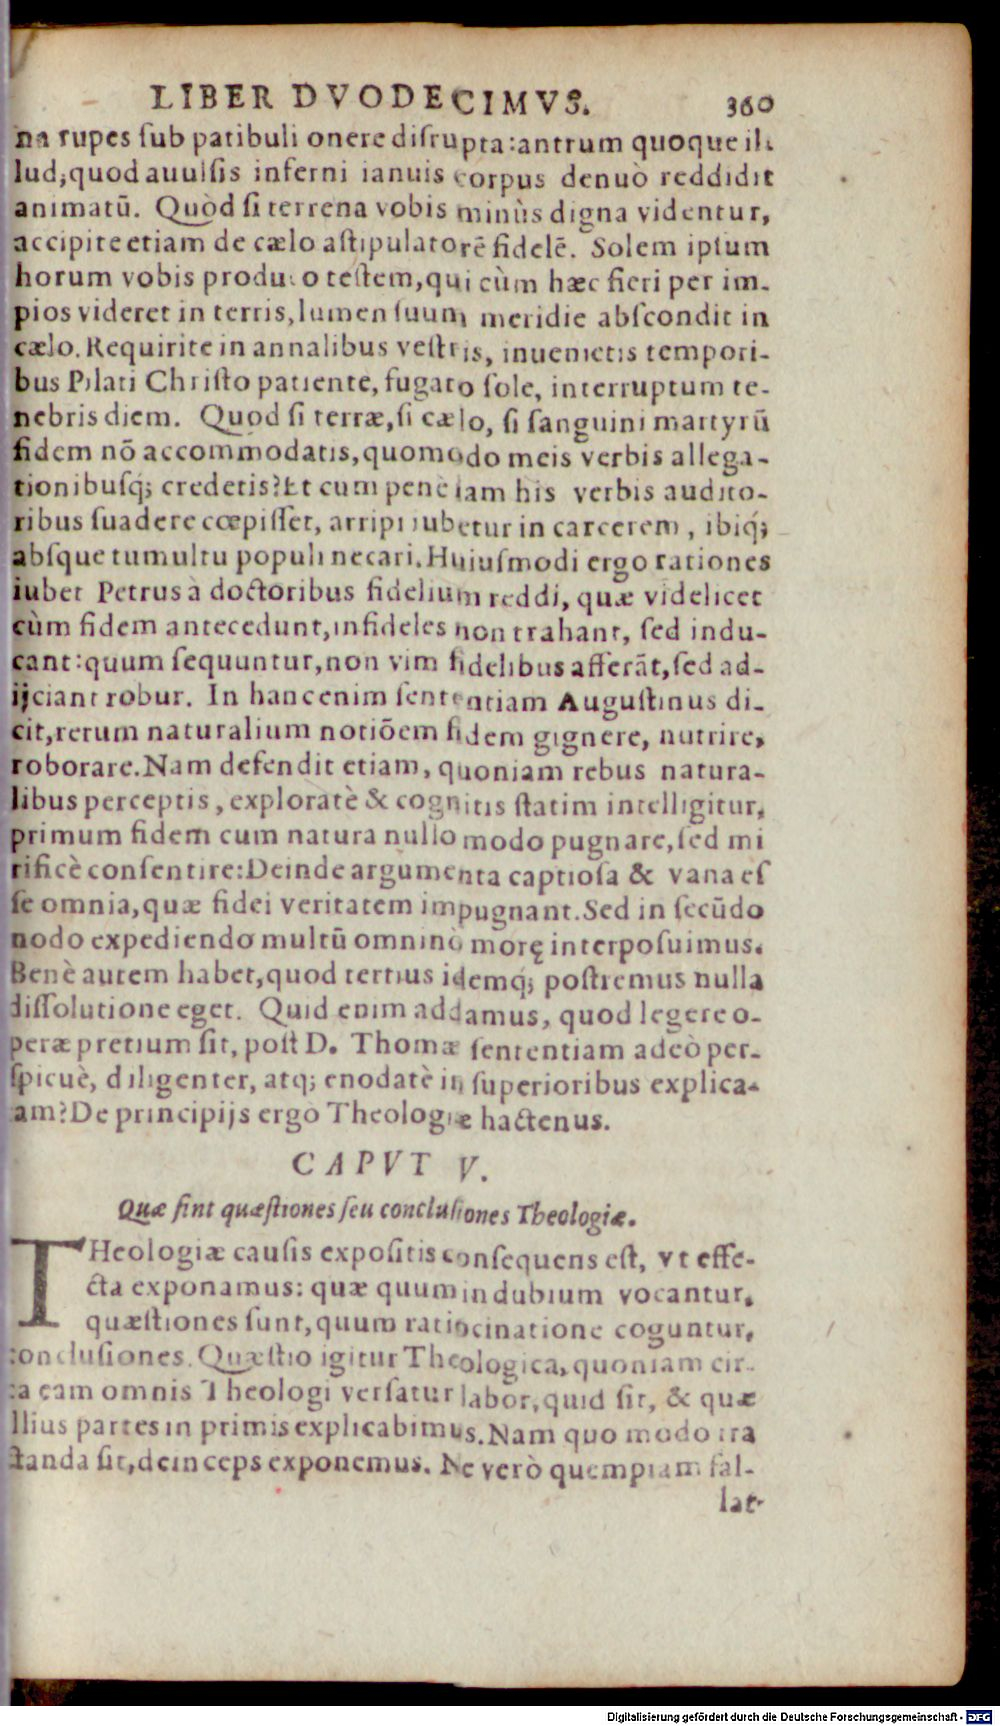 LIBER DVODECIMVS. 360
na rupes ſub patibuli onere diſrupta: antrum quoque il-
lud, quod auulſis inferni ianuis corpus denuò reddidit
animatū. Quòd ſi terrena vobis minùs digna videntur,
accipite etiam de cælo aſtipulatorē fidelē. Solem ipſum
horum vobis produco teſtem, qui cùm hæc fieri per im-
pios videret in terris, lumen ſuum meridie abſcondit in
cælo. Requirite in annalibus veſtris, inuenietis tempori-
bus Pilati Chriſto patiente, fugato ſole, interruptum te-
nebris diem. Quod ſi terræ, ſi cælo, ſi ſanguini martyrū
fidem nō accommodatis, quomodo meis verbis allega-
tionibuſq́; credetis? Et cum penè iam his verbis audito-
ribus ſuadere cœpiſſet, arripi iubetur in carcerem, ibiq́;
abſque tumultu populi necari. Huiuſmodi ergo rationes
iubet Petrus à doctoribus fidelium reddi, quæ videlicet
cùm fidem antecedunt, infideles non trahant, ſed indu-
cant: quum ſequuntur, non vim fidelibus afferāt, ſed ad-
ijciant robur. In hanc enim ſententiam Auguſtinus di-
cit, rerum naturalium notiōem fidem gignere, nutrire,
roborare. Nam defendit etiam, quoniam rebus natura-
libus perceptis, exploratè & cognitis ſtatim intelligitur,
primum fidem cum natura nullo modo pugnare, ſed mi
rificè conſentire: Deinde argumenta captioſa & vana eſ
ſe omnia, quæ fidei veritatem impugnant. Sed in ſecūdo
nodo expediendo multū omninò morę interpoſuimus.
Benè autem habet, quod tertius idemq́; poſtremus nulla
diſſolutione eget. Quid enim addamus, quod legere o-
peræ pretium ſit, poſt D. Thomæ ſententiam adeò per-
ſpicuè, diligenter, atq; enodatè in ſuperioribus explica-
tam? De principijs ergo Theologiæ hactenus.
CAPVT V.
Quæ ſint quæſtiones ſeu concluſiones Theologiæ.
THeologiæ cauſis expoſitis conſequens eſt, vt effe-
cta exponamus: quæ quum in dubium vocantur,
quæſtiones ſunt, quum ratiocinatione coguntur,
concluſiones. Quæſtio igitur Theologica, quoniam cir-
ca eam omnis Theologi verſatur labor, quid ſit, & quæ
illius partes in primis explicabimus. Nam quo modo tra
ctanda ſit, deinceps exponemus. Ne verò quempiam fal-
lat
Digitalisierung gefördert durch die Deutsche Forschungsgemeinschaft - DFG